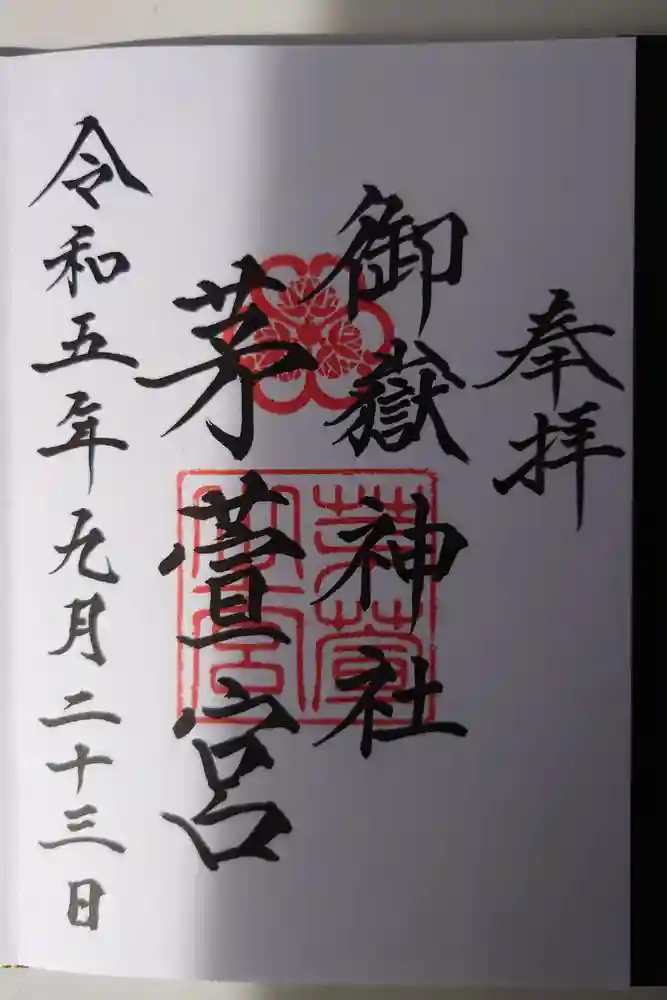 奉拝
御嶽神社
茅萱宮
令和五年九月二十三日